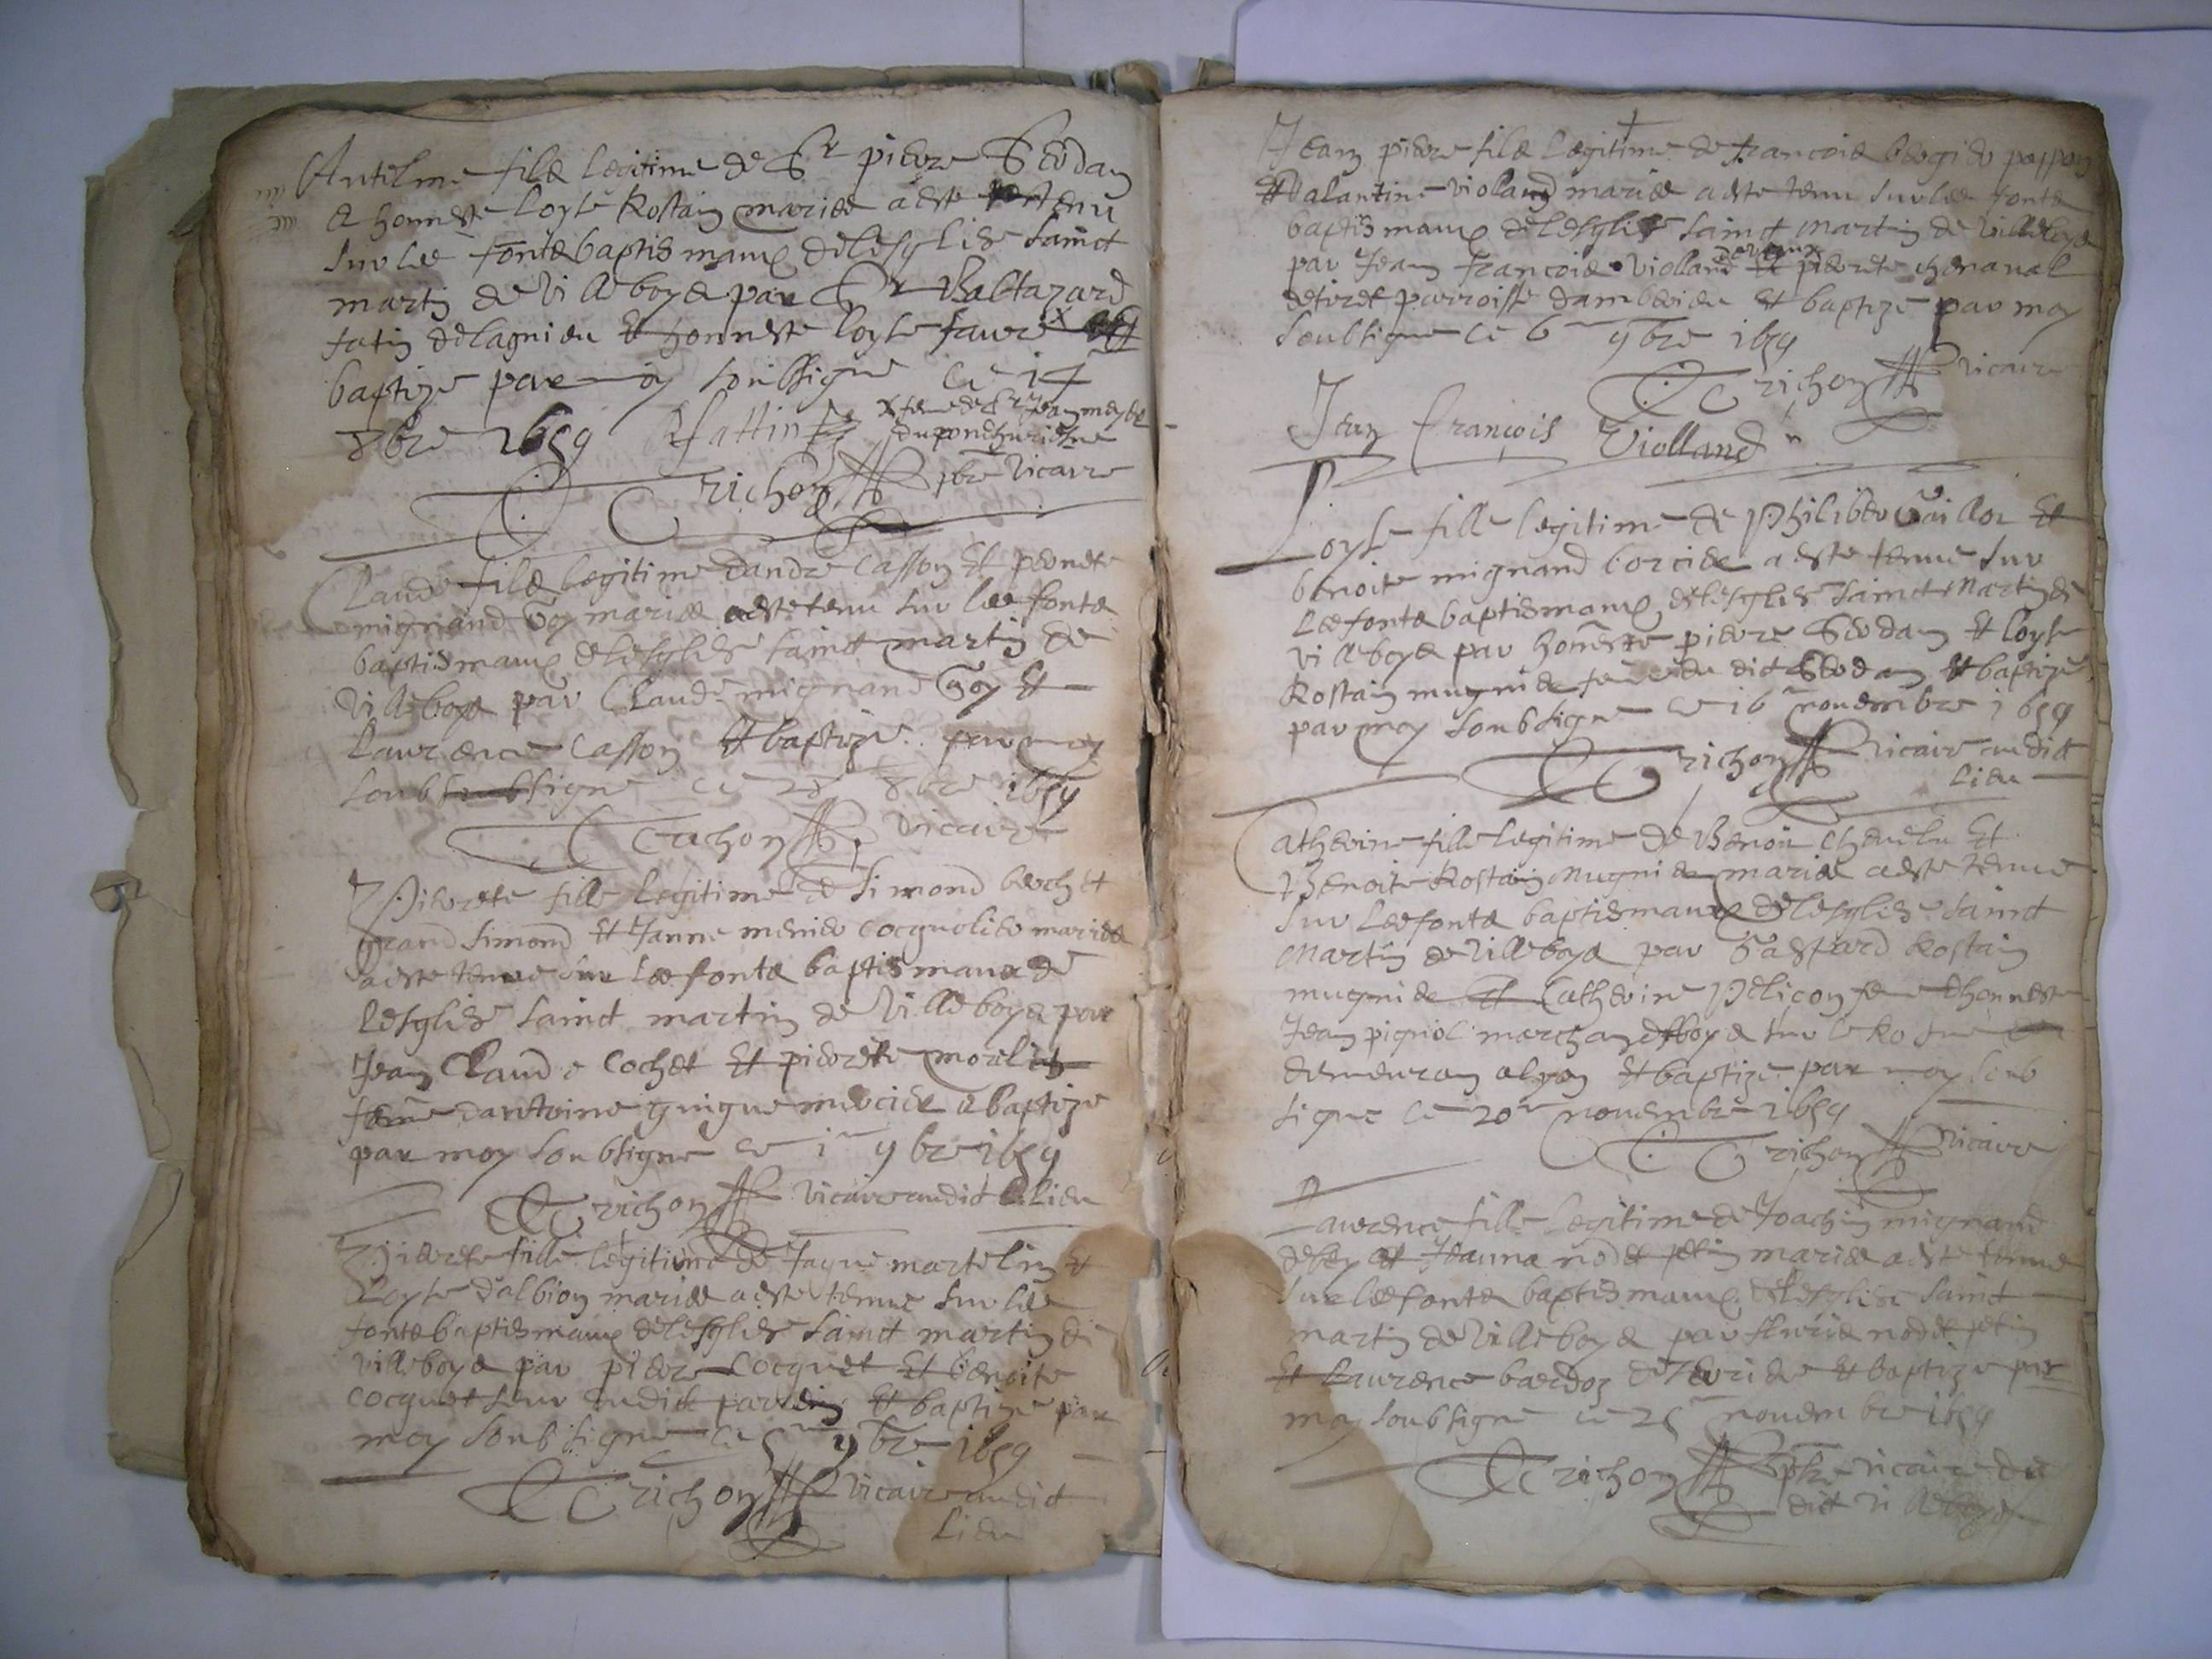 Antelme fils legitime de Sr pierre
& honneste loyse Rostaing maries a este tenu
sur les fonts baptismaux de lesglise sainct
martin de villeboys par Sr Baltazard
fatin de lagnieu Et honneste loyse favre x
baptize par moy soubsigne ce 14
8bre 1659 Bfattin x feme de Sr Jean
Trichon pbre vicaire
Claude fils legitime dandre Casson Et pernete
mignand Goy maries a este tenu sur les fonts
baptismaux de lesglise sainct martin de
villeboys par Claude mignand Goy Et
Laurence Casson Et baptize par moy
soubsigne ce 28 8bre 1659
Trichon vicaire
Pierrete fille legitime de simond berchet
grand simond Et Janne menier cocquolier maries
a este tenue sur les fonts baptismaux de
lesglise sainct martin de villeboys par
Jean Claude Cochet Et pierrete
feme dantoine guigue mercier & baptize
par moy soubsigne ce 1r 9bre 1659
Trichon vicaire audict lieu
Pierrete fille legitime de Jaque martelin Et
Loyse dalbion maries a este tenue sur les
fonts baptismaux de lesglise sainct martin de
villeboys par pierre cocquet Et benoite
cocquet Et baptize par
moy soubsigne ce 5me 9bre 1659
Trichon vicaire audict
lieu
Jean pierre fils legitime de francois bergier
Et valantine violand maries a este tenu sur les fonts
baptismaux de lesglise sainct martin de villeboys
par Jean francois violand Et pierrete chenaval
parroisse dambeieu Et baptize par moy
soubsigne ce 6me 9bre 1659
Trichon vicaire
Jean François Violland
Loyse fille legitime de Philiber Et
benoite mignand a este tenue sur
les fonts baptismaux de lesglise sainct Martin de
villeboys par honneste pierre Et loyse
Rostaing mugnier feme du dict Et baptize
par moy soubsigne ce 16me novembre 1659
Trichon vicaire audict
lieu
Catherine fille legitime de Benoit chevelu Et
Benoite Rostaing mugnier maries a este tenue
sur les fonts baptismaux de lesglise sainct
Martin de villeboys par Gaspard Rostaing
mugnier Et Catherine Pelicon feme dhonneste
Jean pigniol marchand sur le Rosne
demeuran a lyon Et baptize par moy soub
signe ce 20me novembre 1659
Trichon vicaire
Laurence fille legitime de Joachin mignand
Et Jeanne nodet petin maries a este tenue
sur les fonts baptismaux de lesglise sainct
martin de villeboys par nodet petin
Et Laurence bardoz Et baptize par
moy soubsigne ce 25me novembre 1659
Trichon pbre vicaire du
dict villeboys